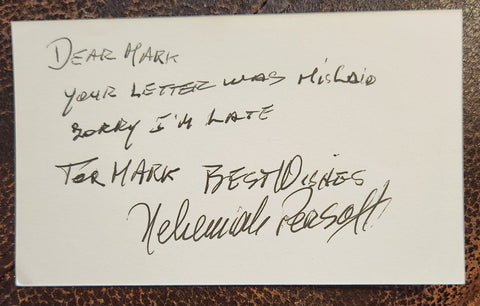 DEAR MARK
YOUR LETTER WAS MISLAID
SORRY I'M LATE
FOR MARK BEST WISHES
Nehemiah Persoff